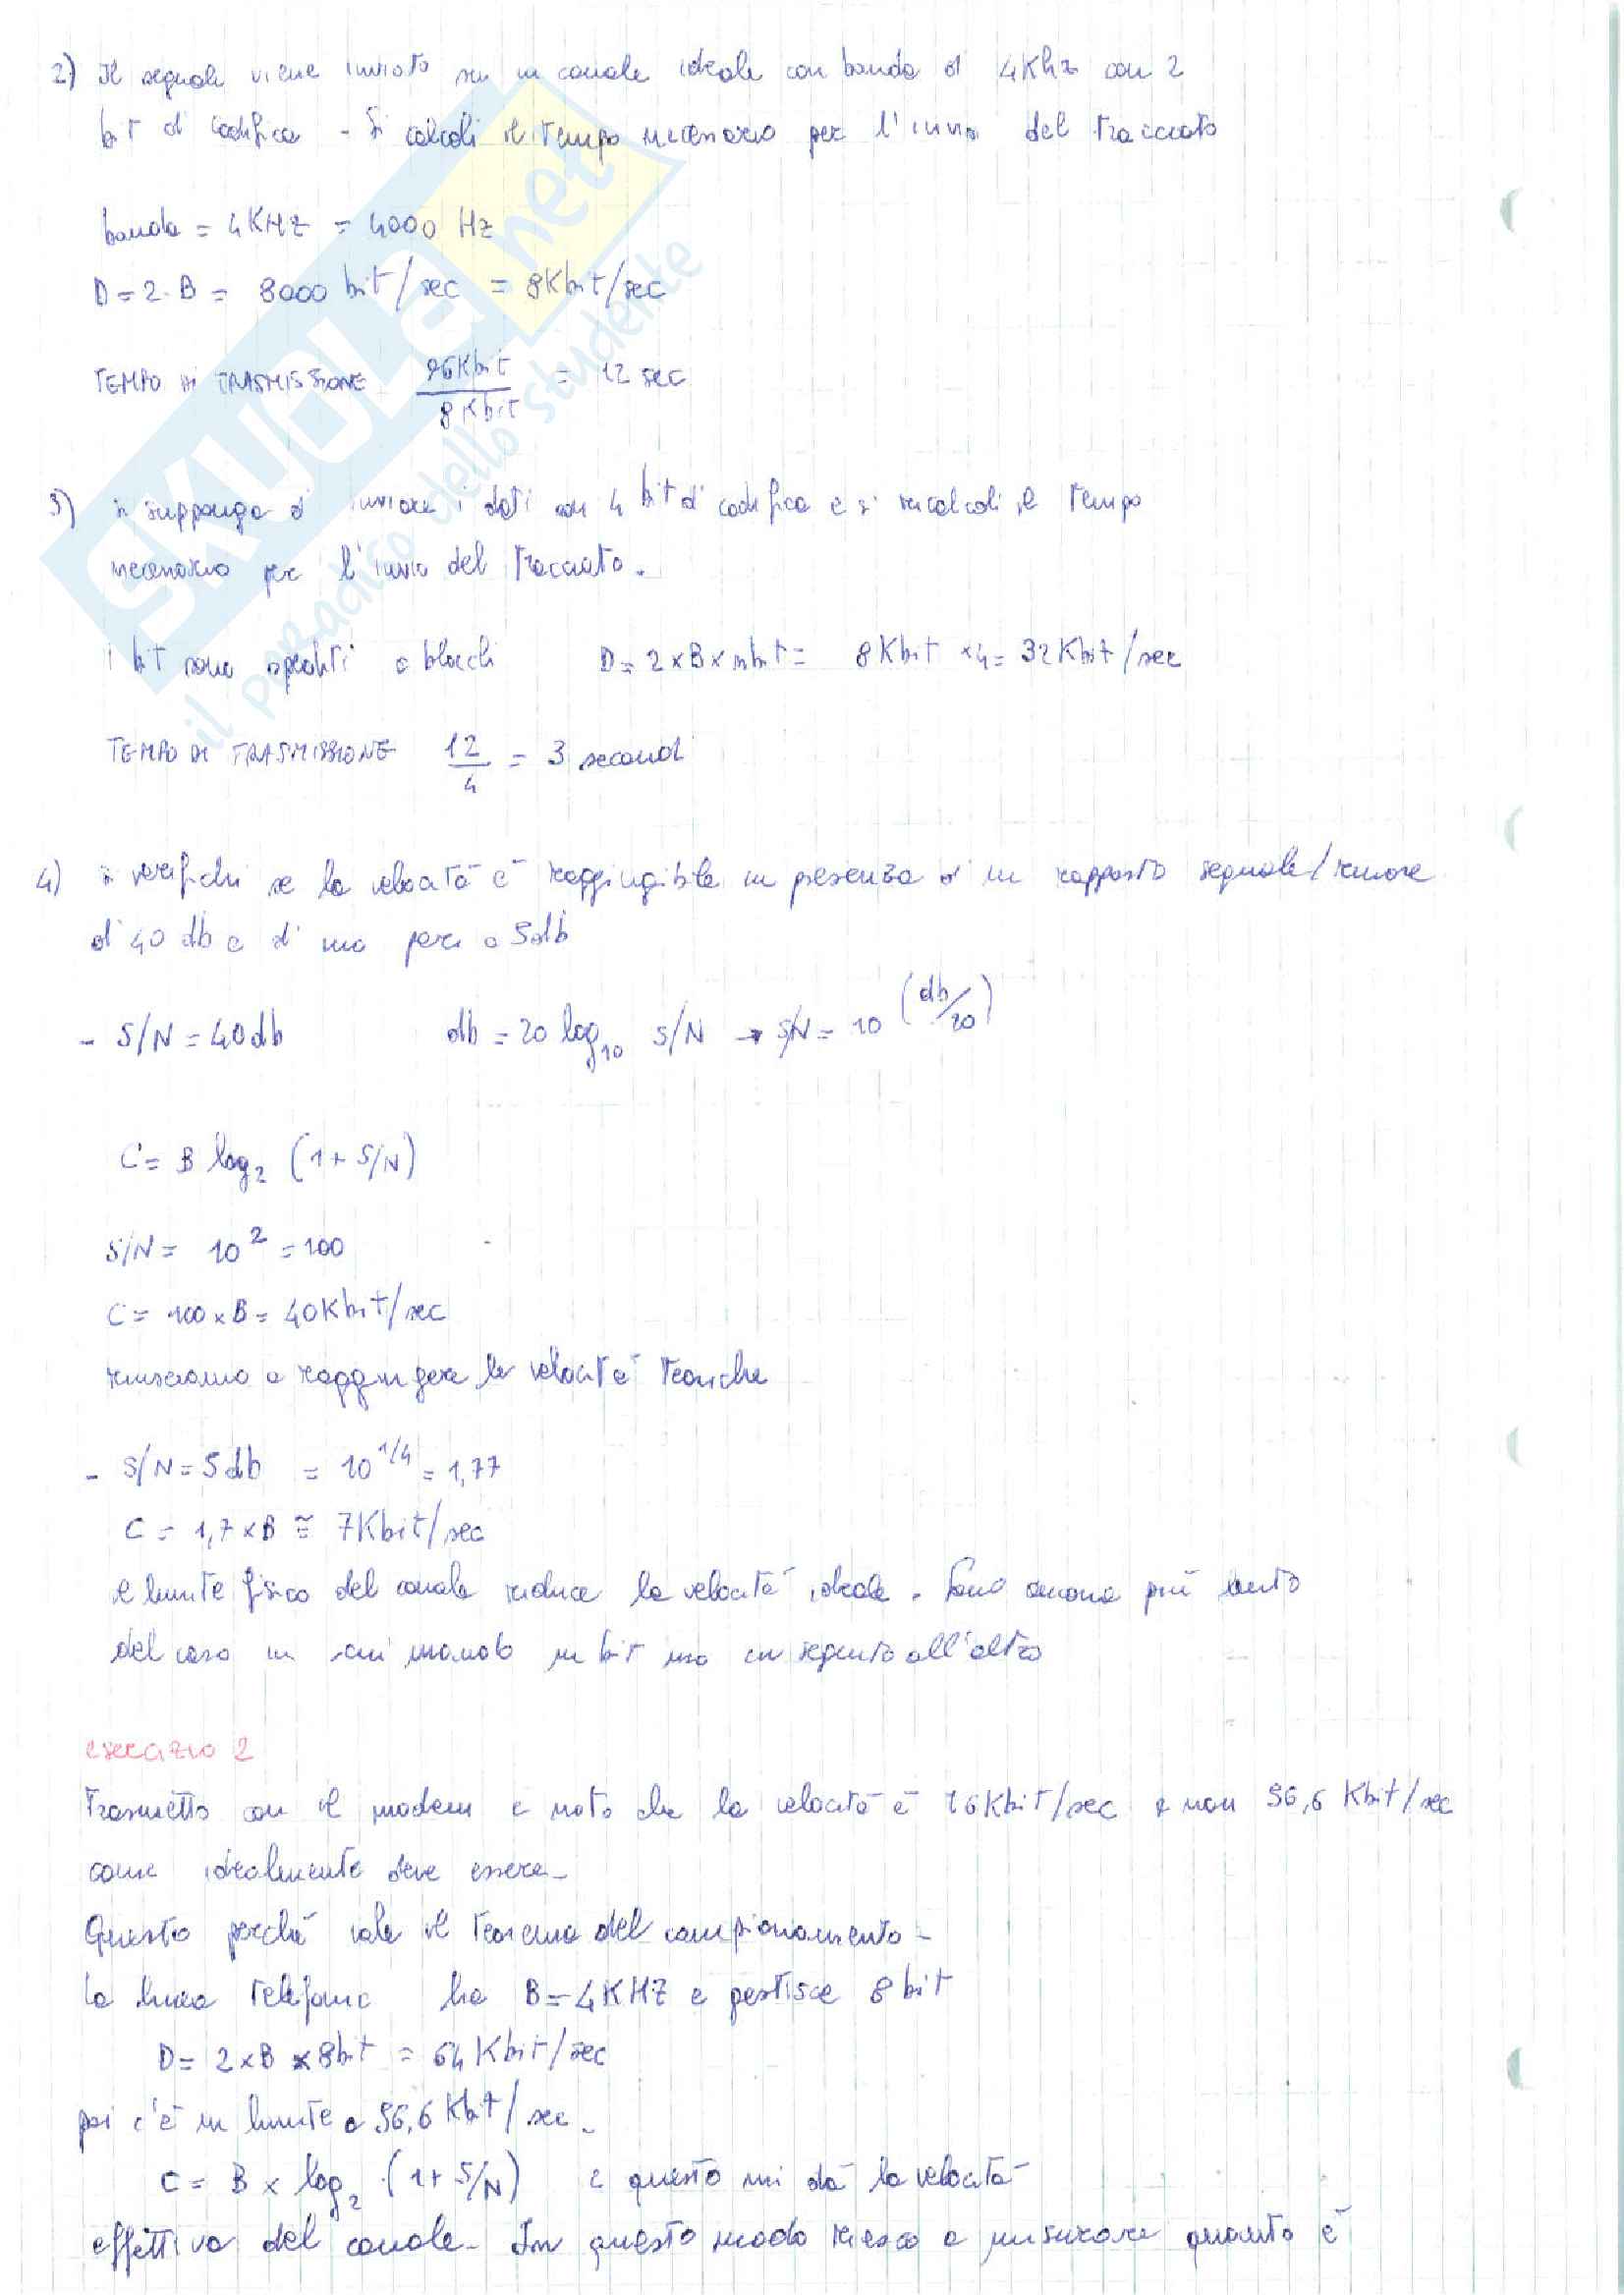 2) Il segnale viene inviato su un canale ideale con banda di 4Khz con 2
bit di codifica - Si calcoli il tempo necessario per l'invio del tracciato
banda = 4KHZ = 4000 Hz
D = 2·B = 8000 bit/sec = 8Kbit/sec
TEMPO DI TRASMISSIONE 96Kbit / 8Kbit = 12 sec
3) si supponga di inviare i dati con 4 bit di codifica e si ricalcoli il tempo
necessario per l'invio del tracciato.
i bit sono spediti a blocchi D = 2 x B x nbit = 8Kbit x4 = 32Kbit/sec
TEMPO DI TRASMISSIONE 12/4 = 3 secondi
4) si verifichi se la velocità è raggiungibile in presenza di un rapporto segnale/rumore
di 40 db e di uno pari a 5db
- S/N = 40db db = 20 log₁₀ S/N → S/N = 10^(db/20)
C = B log₂ (1 + S/N)
S/N = 10² = 100
C = 100 x B = 40Kbit/sec
riusciamo a raggiungere le velocità teoriche
- S/N = 5db = 10^1/4 = 1,77
C = 1,7 x B ≅ 7Kbit/sec
il limite fisico del canale riduce la velocità ideale. Sono ancora più lento
del caso in cui mando un bit uno in seguito all'altro
esercizio 2
Trasmetto con il modem e noto che la velocità è 16Kbit/sec e non 56,6 Kbit/sec
come idealmente deve essere-
Questo perché vale il teorema del campionamento-
la linea telefonic ha B=4KHZ e gestisce 8 bit
D = 2 x B x 8bit = 64 Kbit/sec
poi c'è un limite a 56,6 Kbit/sec.
C = B x log₂ (1 + S/N) e questo mi dà la velocità
effettiva del canale- In questo modo riesco a misurare quanto è
SKUOLA.net
il paradiso dello studente